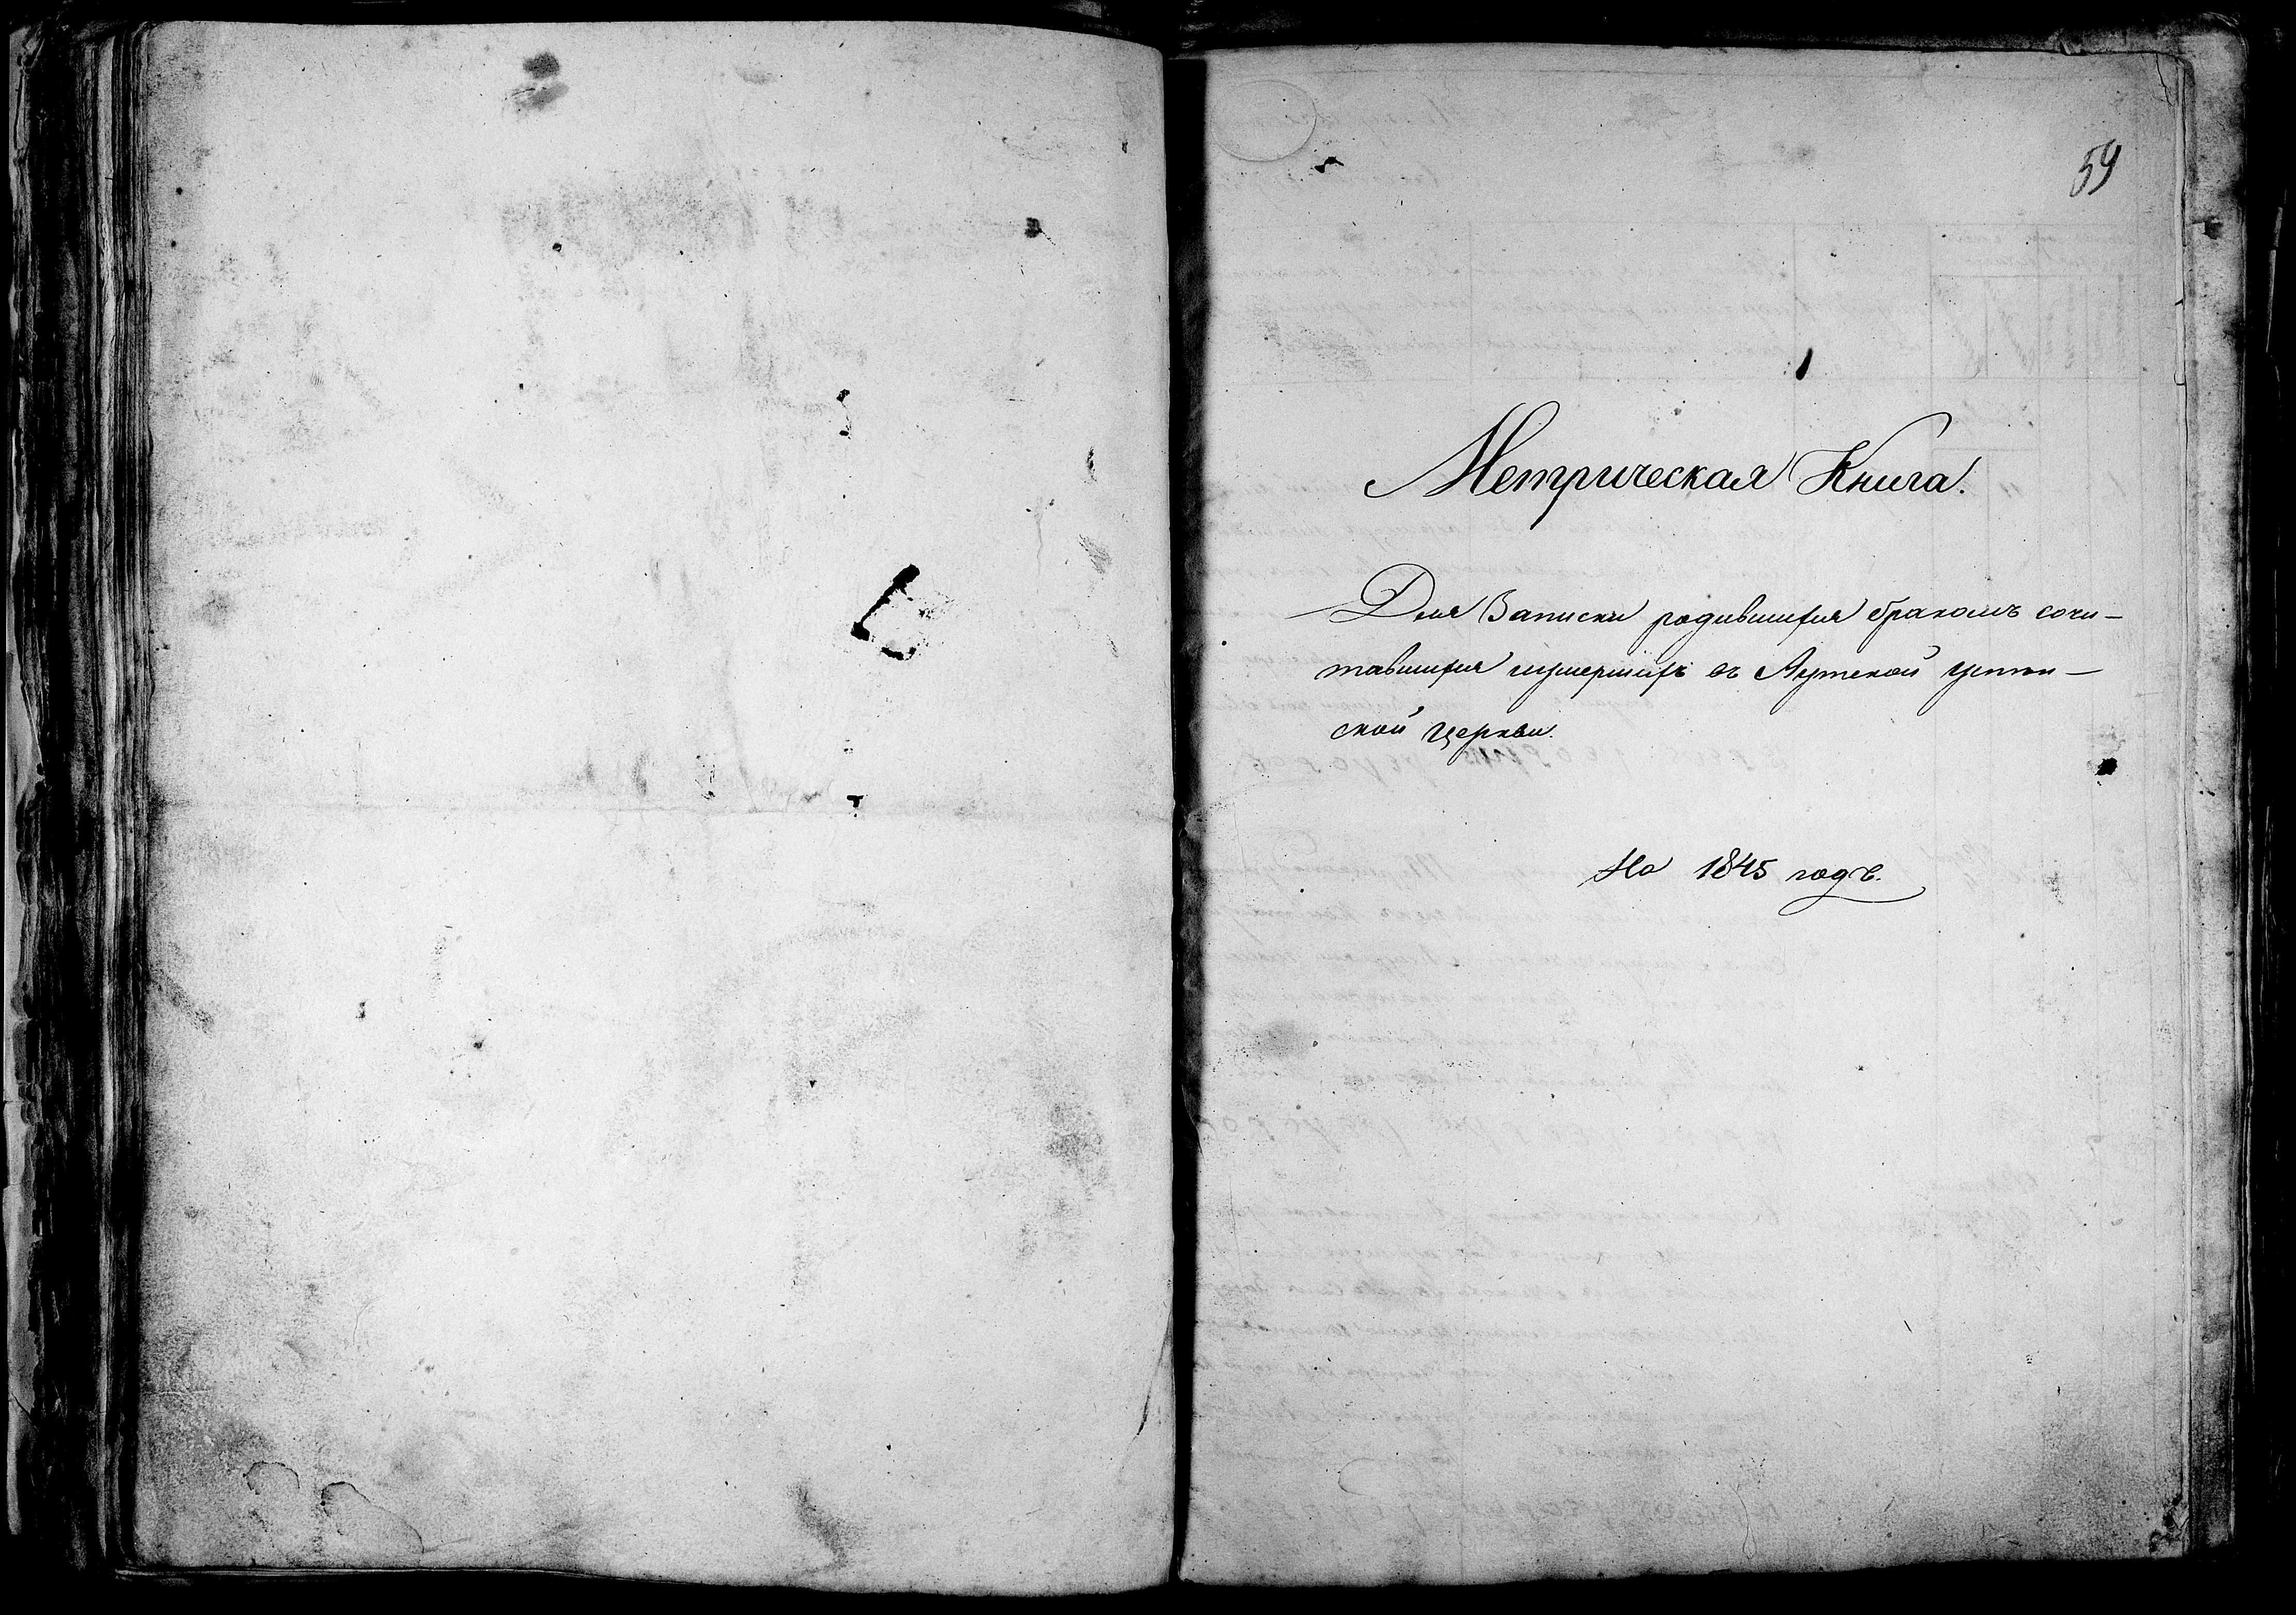 59
Метрическая Книга.
Для Записки родившихся бракомъ сочи-
тавшихся иумершихъ въ Аутской Успѣн-
ской Церкви.
На 1845 годъ.